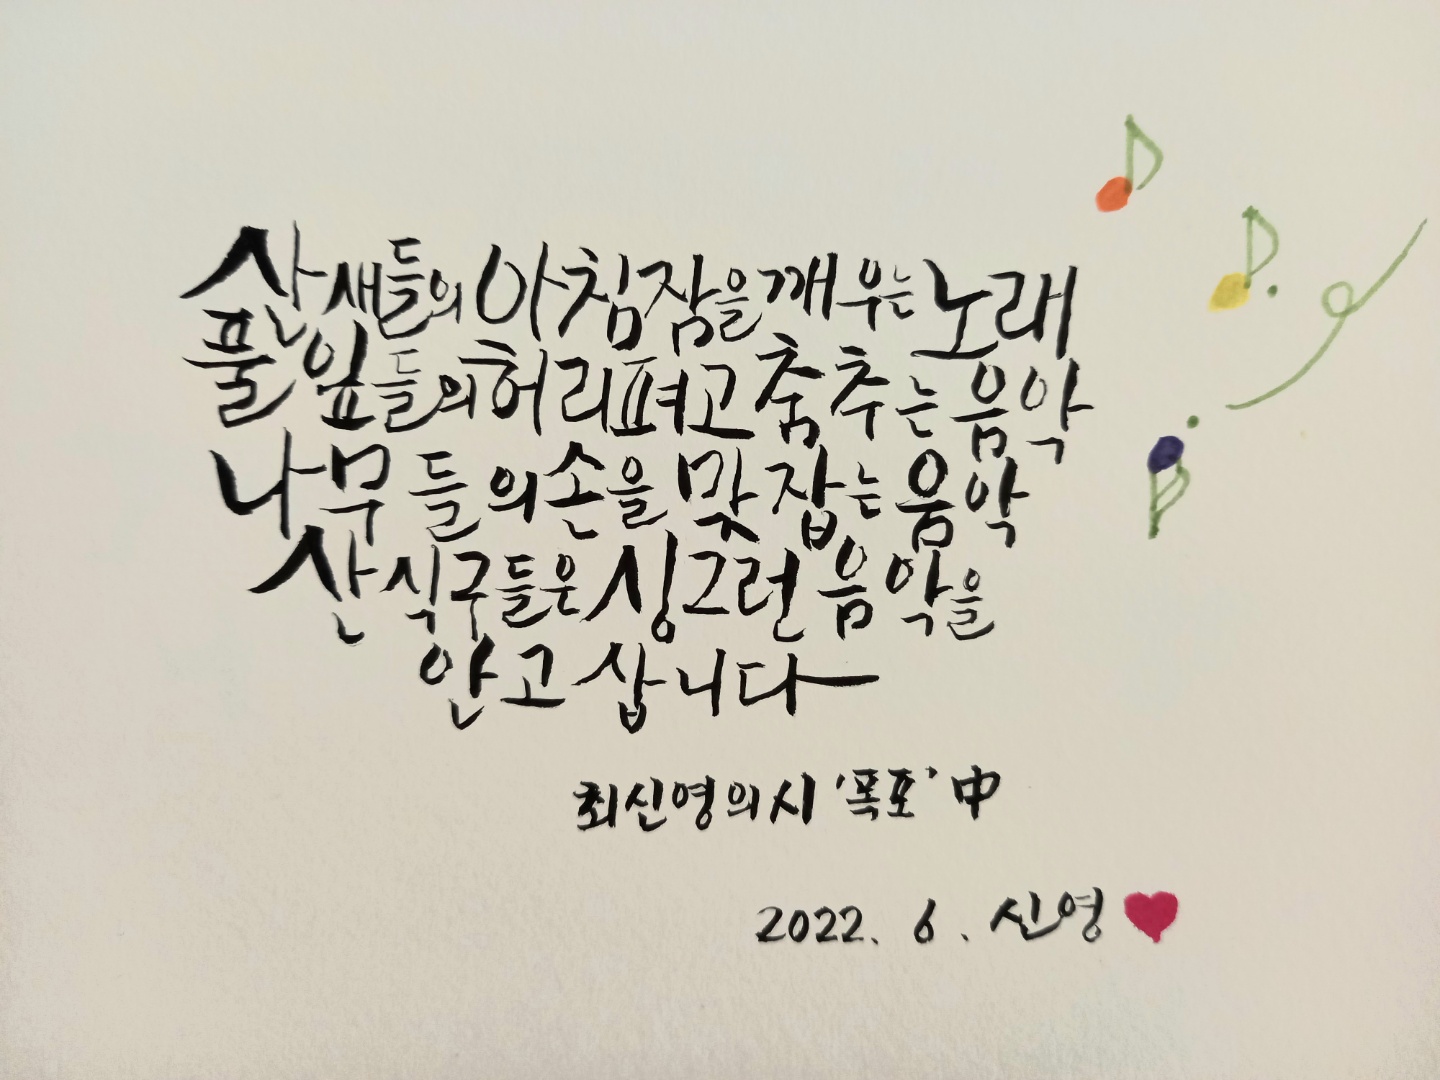 산새들의 아침잠을 깨우는 노래
풀잎들의 허리펴고 춤추는 음악
나무들의 손을 맞잡는 음악
산식구들은 싱그런 음악을
안고 삽니다
최신영의 시 '폭포' 中
2022. 6. 신영